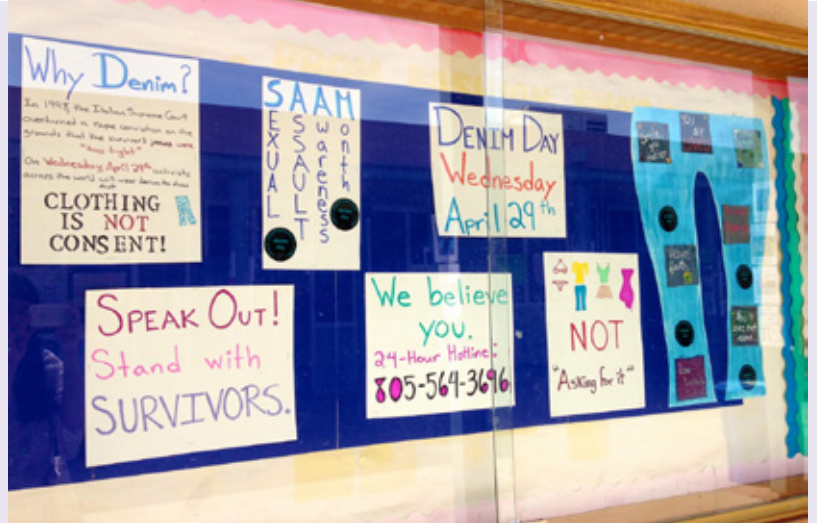 Why Denim?
In 1997, the Italian Supreme Court
overturned a rape conviction on the
grounds that the survivor's jeans were
"too tight"
On Wednesday, April 29th activists
across the world will wear denim to show
that
CLOTHING
IS NOT
CONSENT!
SAAM
SEXUAL
ASSAULT
Awareness
Month
DENIM DAY
Wednesday
April 29th
SPEAK OUT!
Stand with
SURVIVORS.
We believe
you.
24-Hour Hotline:
805-564-3696
NOT
"Asking for it"